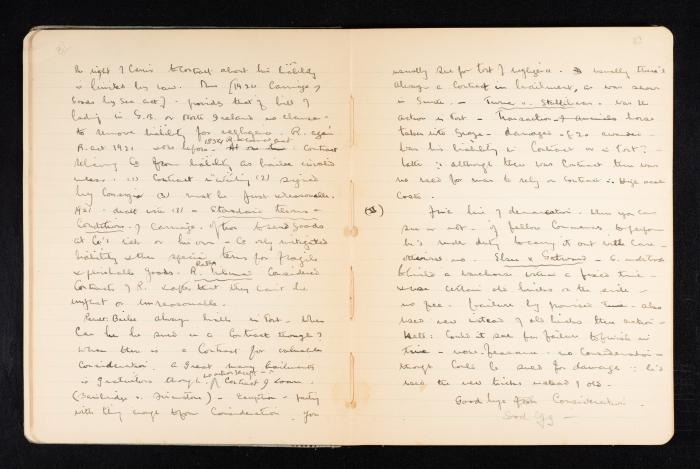 the right of Carrier to Contract about his liability
is limited by law. The (1924 Carriage of
Goods by Sea Act) - provides that if bill of
lading in G.B. or North Ireland no clause
to remove liability for negligence. R.
Act 1921 was before. Contract
relieving Co from liability as bailee invalid
unless (1) Contract in writing (2) signed
by Consignor (3) must be just & reasonable.
1921 - dealt with (3) - Standard Terms &
Conditions of Carriage. Offers to send Goods
at Co's risk or his own - Co only mitigated
liability & then special terms for fragile
& perishable goods. Rates Considered
Contracts of R. & after that they can't be
unjust or unreasonable.
Bailee always liable in Tort. When
Can he be sued in a Contract though?
When there is a Contract for valuable
Consideration. A Great many bailments
is gratuitous though, Contract of loan.
(Bainbridge v. Firmstone) - exception - party
with they wage upon Consideration. You
usually sue for tort of negligence. usually there's
always a Contract in bailment, as was shown
in Smith. - Turner v. Stallibrass. was the
action in Tort - Transaction of horse
taken into - damaged - £20 awarded -
was his liability in Contract or in Tort? -
latter :: although there was Contract there was
no need for man to rely on Contract :: High Court
Costs.
(3) Fine line of demarcation. When you can
sue or not. if fellow Commences to perform
he's under duty to carry it out with Care -
otherwise no. Elsee v Gatward - G. undertook
to build a warehouse within a fixed time -
& use certain old bricks on the side -
no fee. failure by promised time - also
used new instead of old bricks then action -
Held: Could't sue for failure to finish in
time - non-feasance - no Consideration -
though Could be sued for damage :: he's
used the new bricks instead of old.
Good bye from Consideration.
Good Egg -